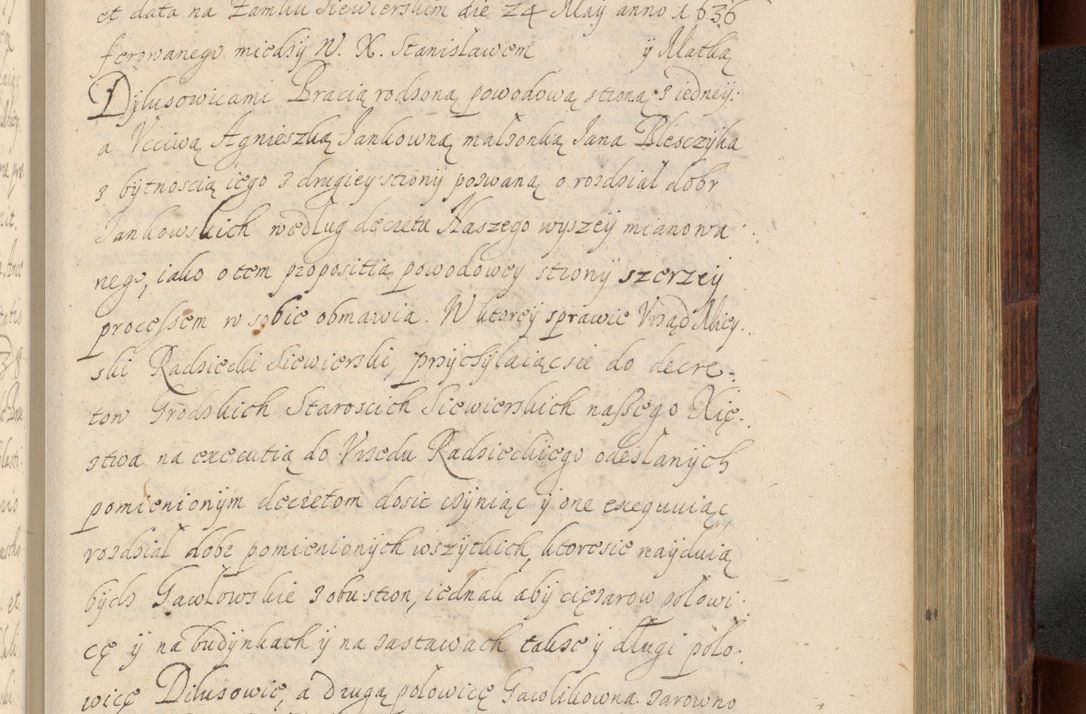 et data na Zamku Siewierskim die 24 Maÿ anno 1636
ferowanego miedzÿ W. X. Stanisławem ÿ Matką
Dÿlusowicami Bracią rodzoną powodową stroną z iedneÿ.
a Vcciwą Agnieszką Jankowną małzonką Jana Blesczÿka
z bÿtnoscią iego z drugieÿ stronÿ pozwaną o rozdział dobr
Jankowskich według decretu Naszego wyszeÿ mianowa
nego, iako o tem propositią powodoweÿ stronÿ szerzeÿ
processem w sobie obmawia. W ktoreÿ sprawie Vrząd Mieÿ.
ski Radziecki Siewierski, przÿchÿlaiąc sie do decre-
tow Grodzkich Staroscich Siewierskich naszego Xię.
stwa na executią do Vrzedu Radzieckiego odesłanÿch
pomienionÿm decretom dosic czÿniąc ÿ one exequuiąc
rozdział dobr pomienionÿch wszÿtkich, ktore sie naÿduią
bÿdz Gawłowskie z obu stron, iednak abÿ cięzarow połowi.
cę ÿ na budÿnkach ÿ na zastawach takze ÿ długi poło.
wicę Dilusowic, a drugą połowicę Gawlikowna zarowno